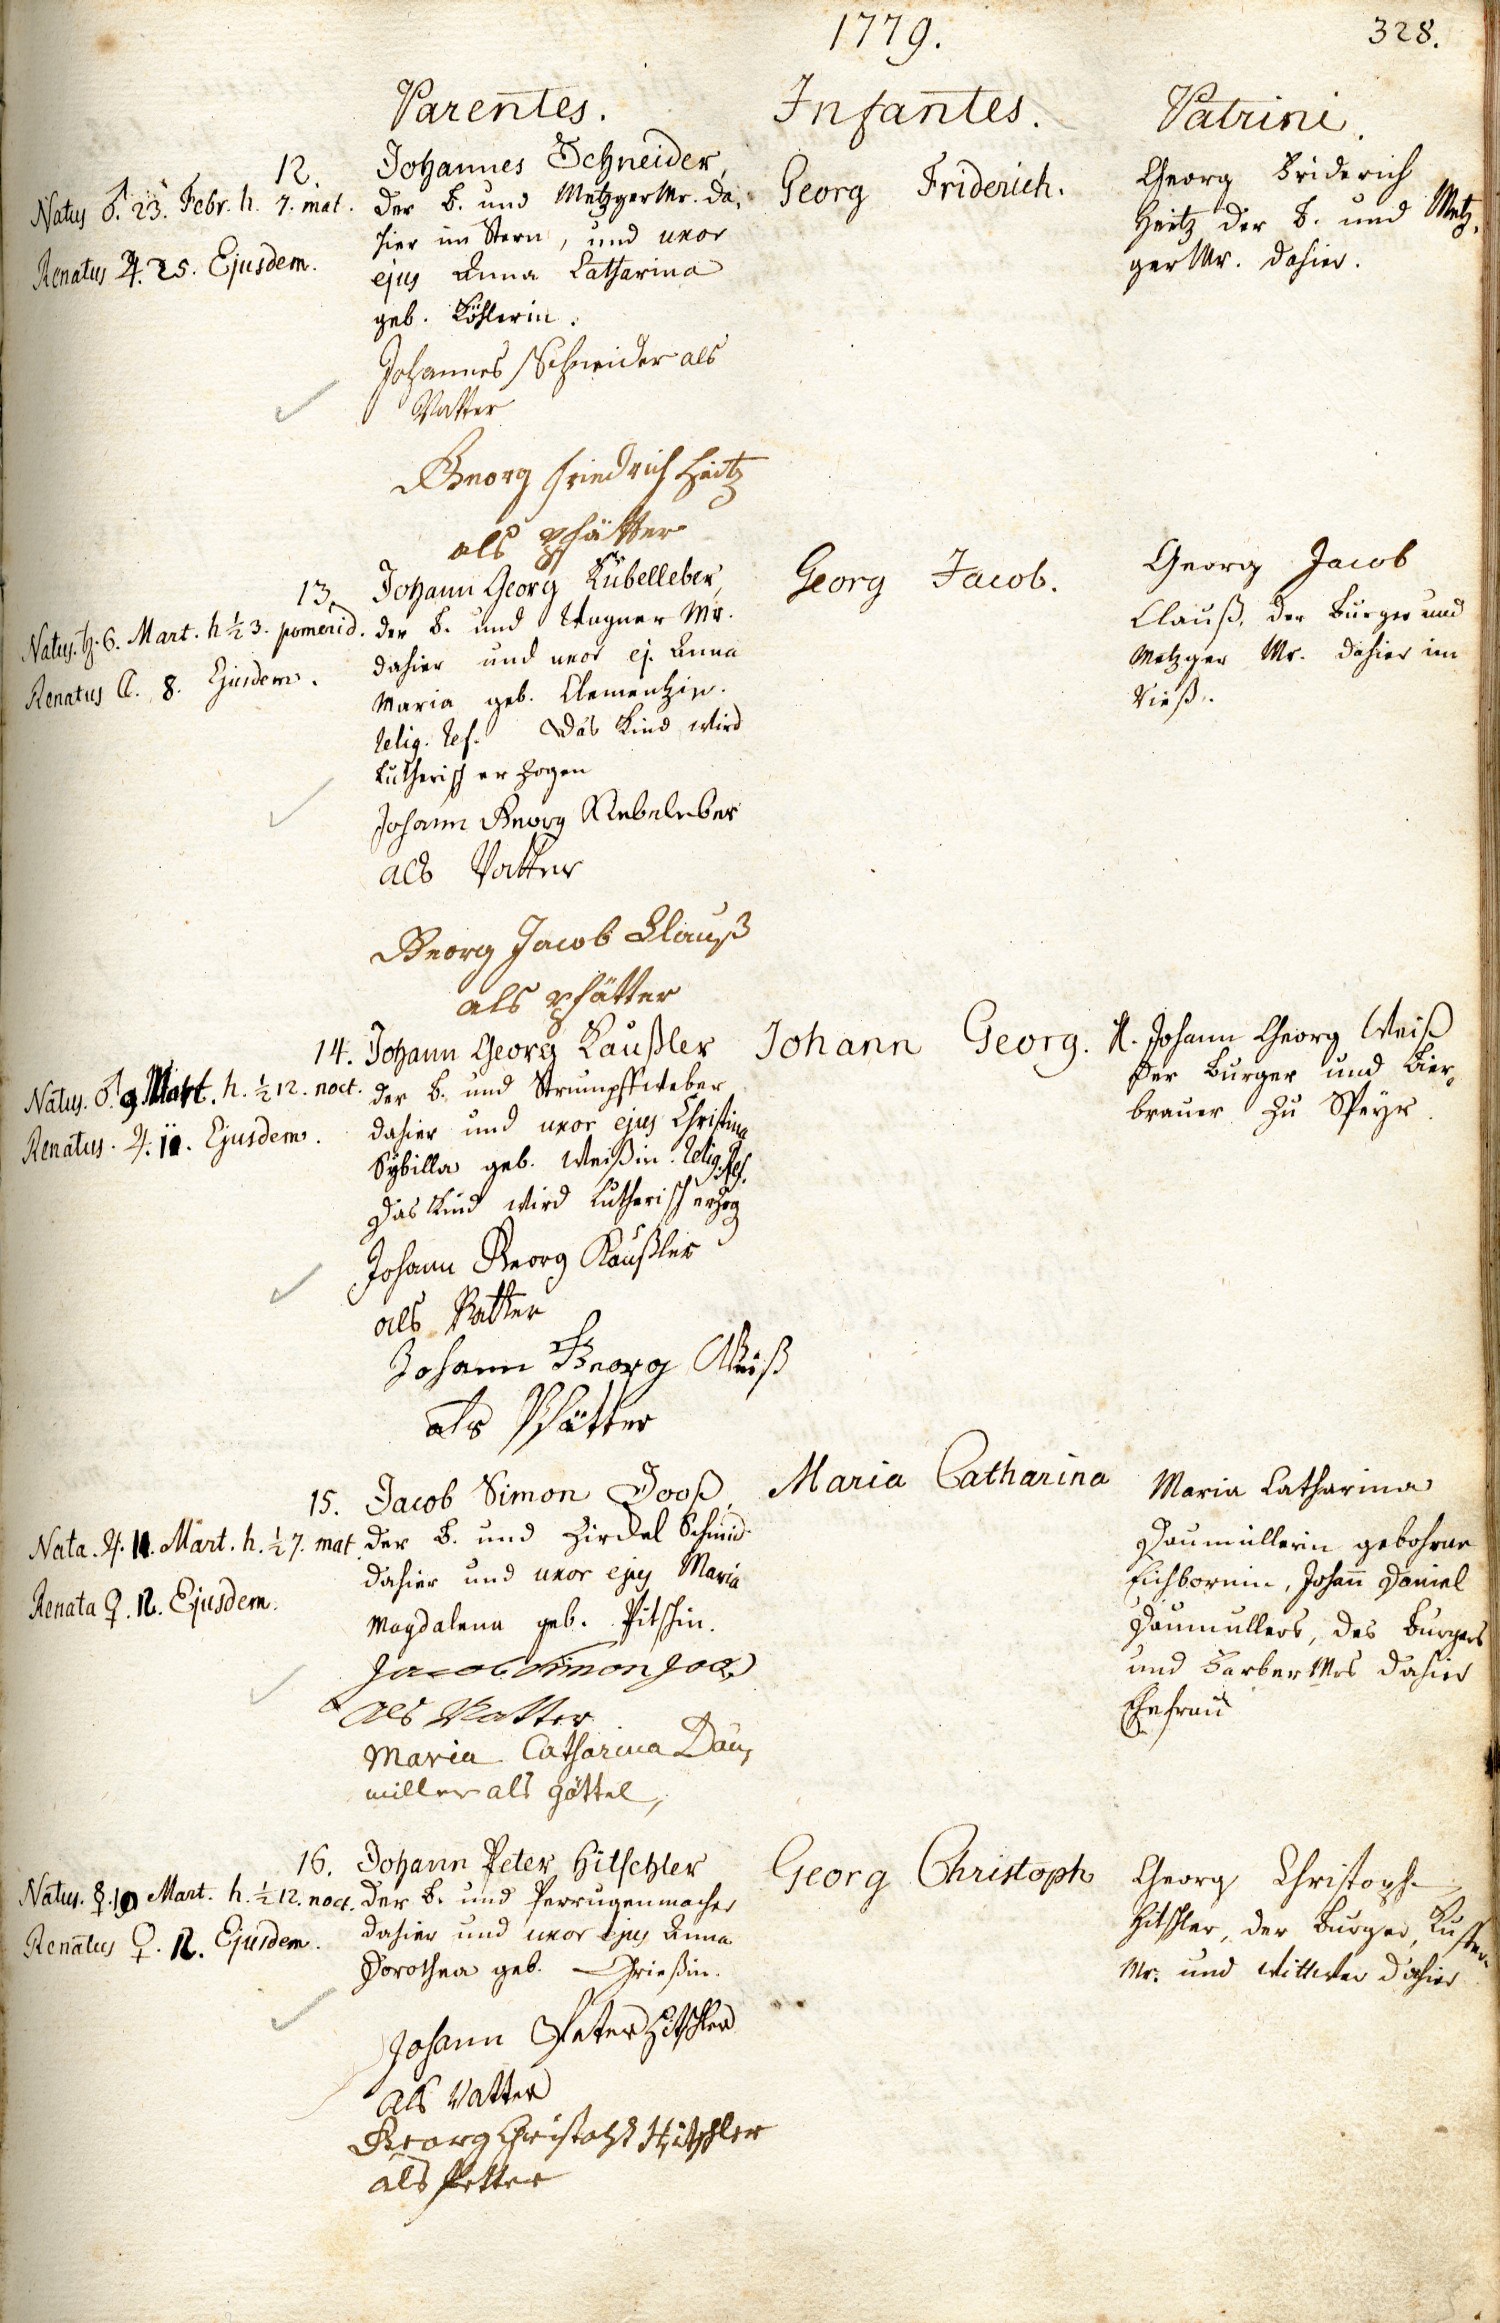 1779.
328.
Parentes.
Infantes.
Patrini.
12.
Natus ♂. 23. Febr. h. 7. mat.
Renatus ♃. 25. Ejusdem.
Johannes Schneider,
der B. und Metzger Mr. da,
hier im Stern, und uxor
ejus Anna Catharina
geb. Köhlerin.
Johannes Schneider als
Vatter
Georg friedrich Heitz
als pfätter
Georg Friderich.
Georg Friderich
Heitz der B. und Metz,
ger Mr. dahier.
13.
Natus. ♄. 6. Mart. h ½ 3. pomerid.
Renatus ☾. 8. Ejusdem.
Johann Georg Kübelleber,
der B. und Wagner Mr.
dahier und uxor ej. Anna
Maria geb. Clementzin.
relig. ref. Das Kind wird
Lutherisch erzogen
Johann Georg Kebeleber
als Vatter
Georg Jacob Clauß
als pfätter
Georg Jacob.
Georg Jacob
Clauß, der Burger und
Metzger Mr. dahier im
Vieß.
14.
Natus. ♂. 9 Mart. h. ½ 12. noct.
Renatus. ♃. 11. Ejusdem.
Johann Georg Kaußler
der B. und Strumpffweber
dahier und uxor ejus Christina
Sÿbilla geb. Weißin. relig. Ref.
Das Kind wird Lutherisch erzog
Johann Georg Kaußler
als Vatter
Johann Georg Weiß
als Pfätter
Johann Georg.
H. Johann Georg Weiß
der Burger und Bier,
brauer zu Speÿr.
15.
Nata. ♃. 11. Mart. h. ½ 7. mat
Renata ♀. 12. Ejusdem.
Jacob Simon Jooß,
der B. und Zirckel Schmid
dahier und uxor ejus Maria
Magdalena geb. Pitschin.
Jacob Simon Joos
als Vatter
Maria Catharina Dau,
miller als göttel,
Maria Catharina
Maria Catharina
Daumüllerin gebohrne
Eichbornin, Johann Daniel
Daumullers, des Burgers
und Farber Mrs dahier
Ehefrau
16.
Natus. ☿. 10 Mart. h. ½ 12. noct.
Renatus ♀. 12. Ejusdem.
Johann Peter Hitschler
der B. und Perrugenmacher
dahier und uxor ejus Anna
Dorothea geb. Grießin.
Johann Peter Hitschler
als Vatter
Georg Christoph Hitschler
als Petter
Georg Christoph
Georg Christoph
Hitschler, der Burger,
Mr. und Wittwer dahier